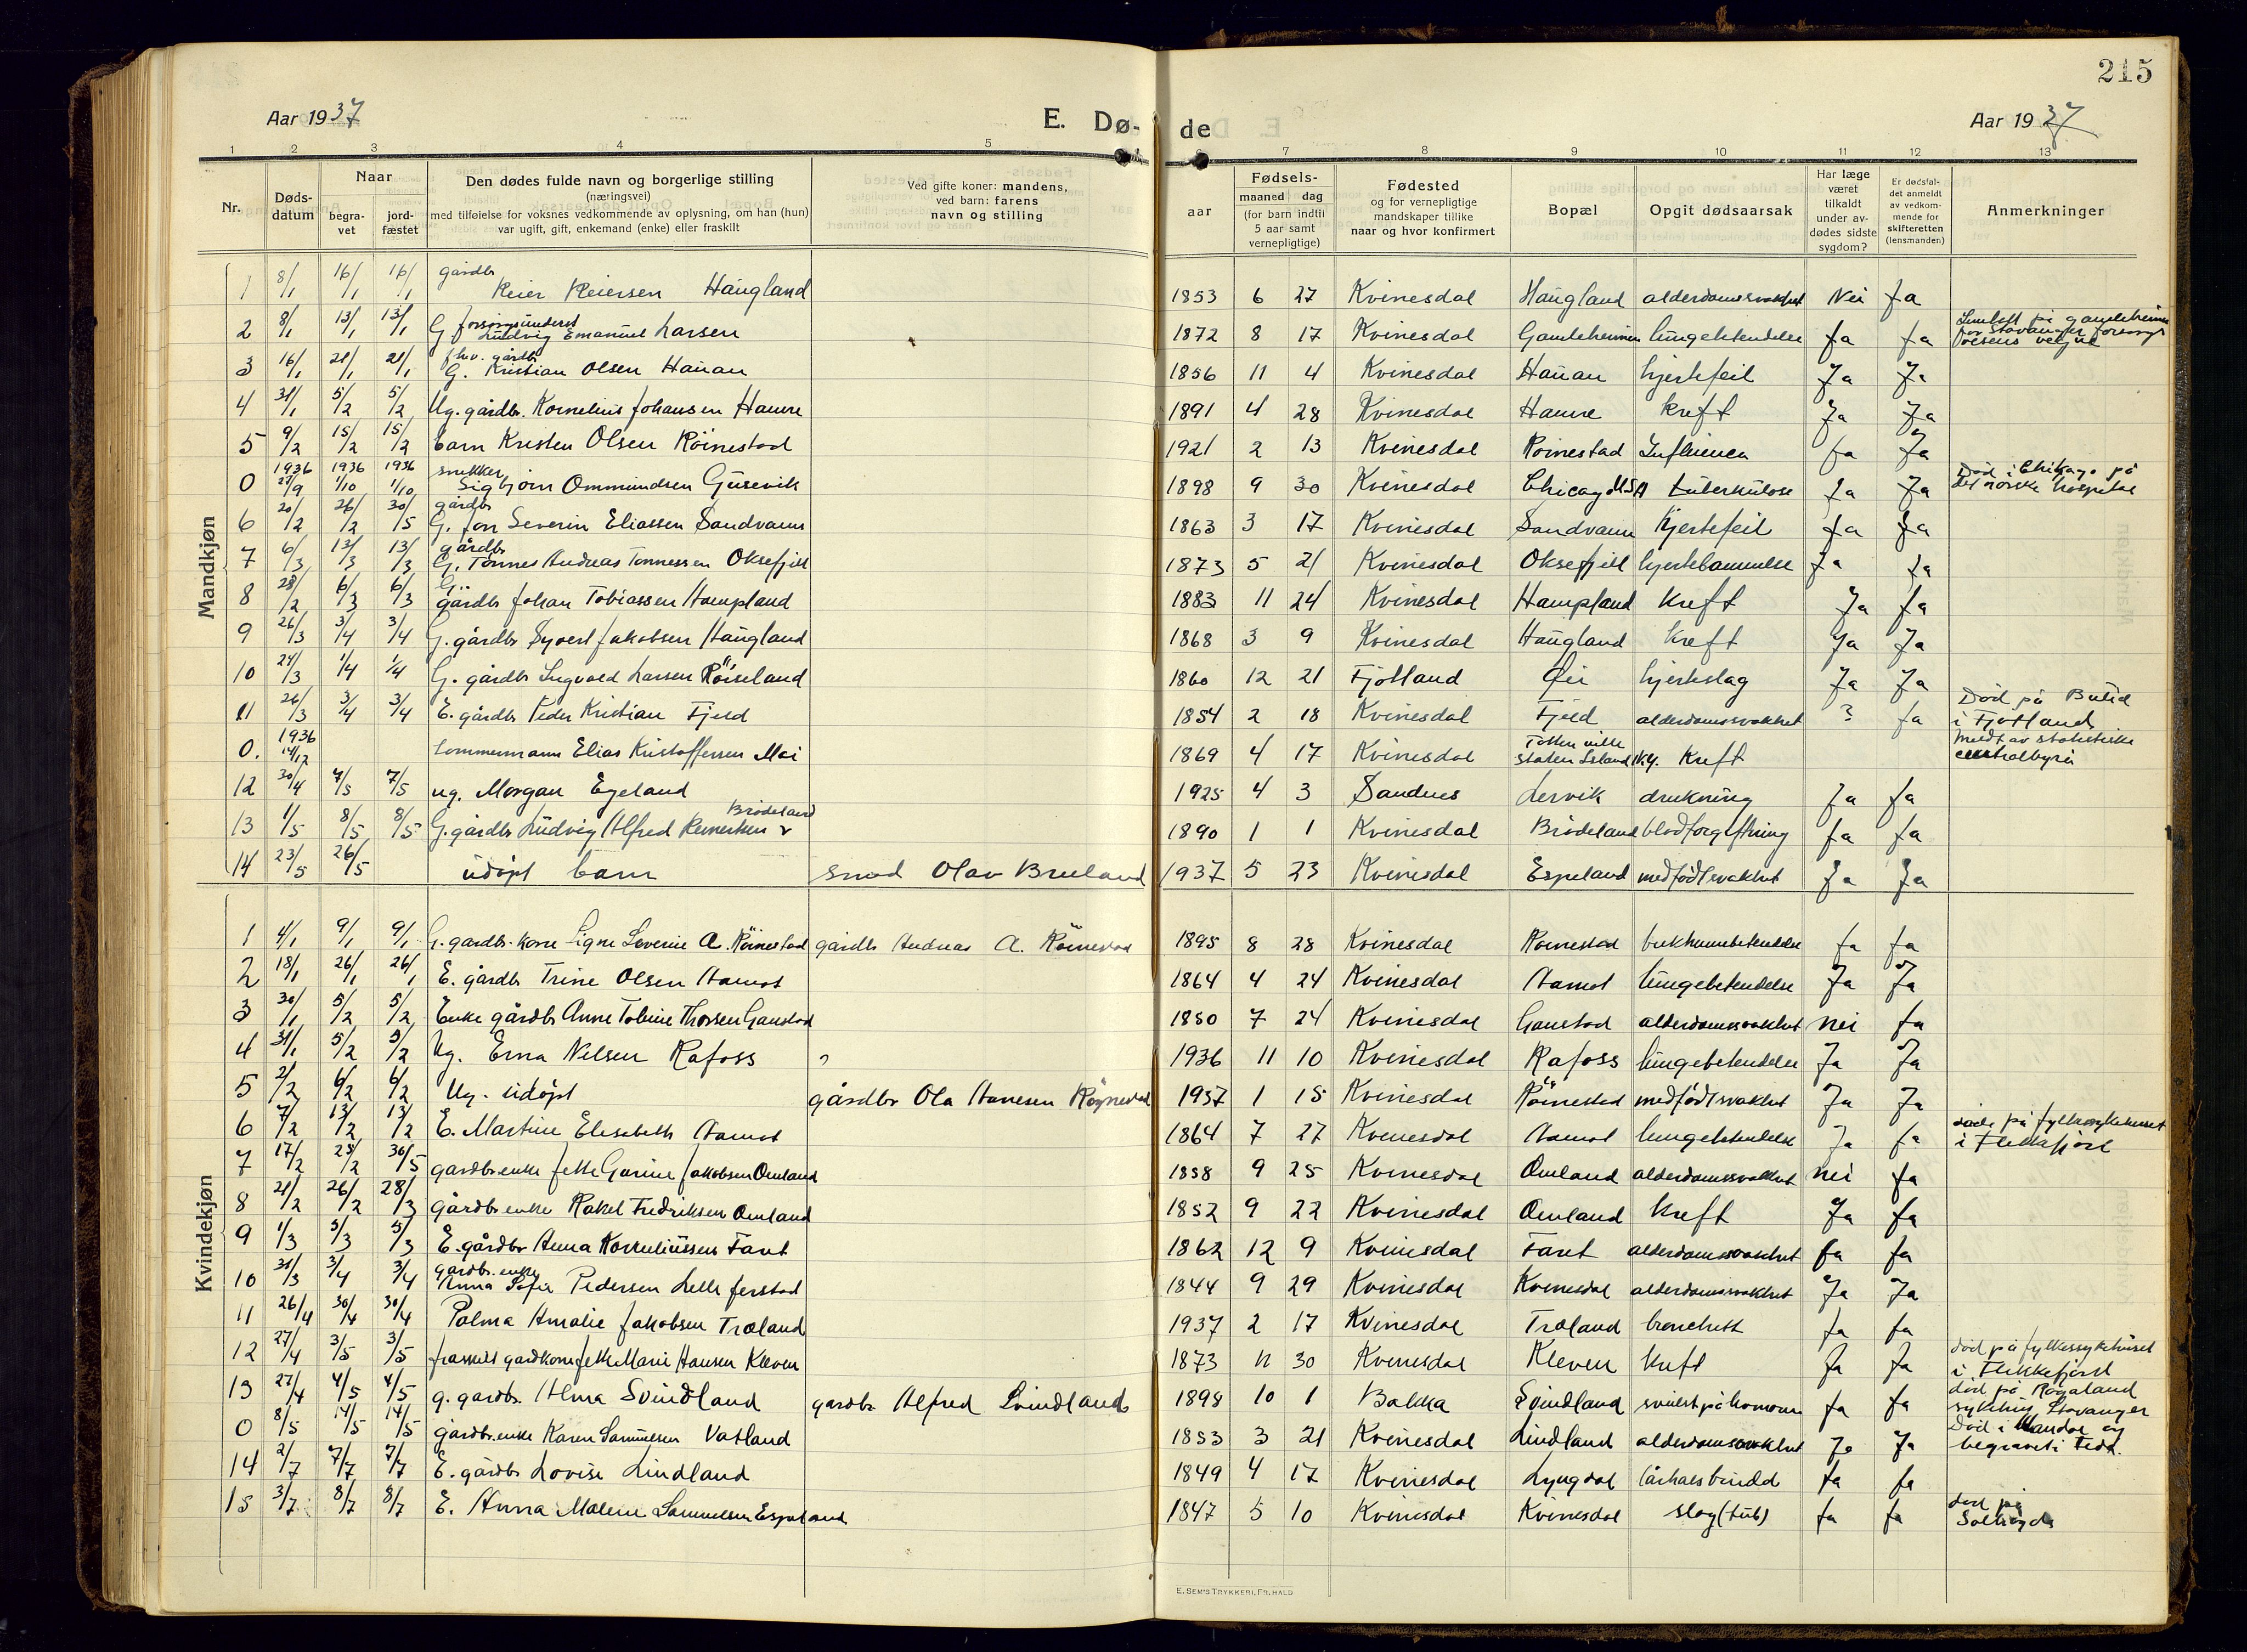 215
Aar 1937 E. Dø- de Aar 1937
1 2 3 4 5 6 7 8 9 10 11 12 13
Nr. Døds-datum Naar begra-vet jord-fæstet Den dødes fulde navn og borgerlige stilling (næringsvei) med tilføielse for voksnes vedkommende av oplysning, om han (hun) var ugift, gift, enkemand (enke) eller fraskilt Ved gifte koner: mandens, ved barn: farens navn og stilling aar Fødsels- maaned dag (for barn indtil 5 aar samt vernepligtige) Fødested og for vernepligtige mandskaper tillike naar og hvor konfirmert Bopæl Opgit dødsaarsak Har læge været tilkaldt under av-dødes sidste sygdom? Er dødsfal-det anmeldt av vedkom-mende for skifteretten (lensmanden) Anmerkninger
Mandkjøn
1 8/1 16/1 16/1 gårdbr Reier Reiersen Haugland 1853 6 27 Kvinesdal Haugland alderdomssvakhet Nei Ja
2 8/1 13/1 13/1 G. forsørgsunderst Ludvig Emanuel Larsen 1872 8 17 Kvinesdal Gamleheimen lungebetendelse Ja Ja på gamleheimen for Stavanger
3 16/1 21/1 21/1 fhv. gårdbr G. Kristian Olsen Hauan 1856 11 4 Kvinesdal Hauan hjertefeil Ja Ja
4 31/1 5/2 5/2 Ug. gårdbr. Kornelius Johansen Hamre 1891 4 28 Kvinesdal Hamre kreft Ja Ja
5 9/2 15/2 15/2 barn Kristen Olsen Röinestad 1921 2 13 Kvinesdal Röinestad Influenca Ja Ja
0 1936 27/9 1936 1/10 1936 1/10 snekker Sigbjørn Ommundsen Gusevik 1898 9 30 Kvinesdal Chicago USA tuberkulose Ja Ja Død i Chikago på det norske hospital
6 20/2 26/2 30/5 gårdbr G. Jon Severin Eliassen Sandvann 1863 3 17 Kvinesdal Sandvann Hjertefeil Ja Ja
7 6/3 13/3 13/3 gårdbr G. Tønnes Andreas Tønnessen Oksefjell 1873 5 21 Kvinesdal Oksefjell hjertelammelse Ja Ja
8 28/2 6/3 6/3 G. gårdbr Johan Tobiassen Hampland 1883 11 24 Kvinesdal Hampland kreft Ja Ja
9 26/3 3/4 3/4 G. gårdbr Syvert Jakobsen Haugland 1868 3 9 Kvinesdal Haugland kreft Ja Ja
10 24/3 1/4 1/4 G. gårdbr Ingvald Larsen Röiseland 1860 12 21 Fjotland Øie hjerteslag Ja Ja
11 26/3 3/4 3/4 E. gårdbr Peder Kristian Fjeld 1854 2 18 Kvinesdal Fjeld alderdomssvakhet ? Ja Død på Bulid i Fjotland
0. 1936 14/12 tømmermann Elias Kristoffersen Moi 1869 4 17 Kvinesdal Totten ville Staten Island N.Y. Kreft Meldt av statistiske centralbyrå
12 30/4 7/5 7/5 ug. Morgan Egeland 1925 4 3 Sandnes Lervik drukning Ja Ja
13 1/5 8/5 8/5 G. gårdbr Ludvig Alfred Reinertsen Brådeland 1890 1 1 Kvinesdal Brådeland blodforgiftning Ja Ja
14 23/5 26/5 udøpt barn smed Olav Breiland 1937 5 23 Kvinesdal Espeland medfødt svakhet Ja Ja
Kvindekjøn
1 4/1 9/1 9/1 G. gardbr. kone Signe Severine A. Röinestad gårdbr Andreas A. Röinestad 1895 8 28 Kvinesdal Röinestad bukhinnebetendelse Ja Ja
2 18/1 26/1 26/1 E. gårdbr Trine Olsen Aamot 1864 4 24 Kvinesdal Aamot lungebetendelse Ja Ja
3 30/1 5/2 5/2 Enke gårdbr Anne Tobine Thorsen Ganstad 1850 7 24 Kvinesdal Ganstad alderdomssvakhet nei Ja
4 31/1 5/2 5/2 Ug. Erna Nilsen Rafoss 1936 11 10 Kvinesdal Rafoss lungebetendelse Ja Ja
5 2/2 6/2 6/2 Ug. udøpt gårdbr Ola Hansen Røynestad 1937 1 15 Kvinesdal Röinestad medfødt svakhet Ja Ja
6 7/2 13/2 13/2 E. Martine Elisabeth Aamot 1864 7 27 Kvinesdal Aamot lungebetendelse Ja Ja døde på fylkessykehuset i Flekkefjord
7 17/2 25/2 30/5 gardbr.enke Jette Gurine Jakobsen Omland 1858 9 25 Kvinesdal Omland alderdomssvakhet nei Ja
8 21/2 26/2 28/3 gårdbr.enke Rakel Fredriksen Omland 1852 9 22 Kvinesdal Omland kreft Ja Ja
9 1/3 5/3 5/3 E. gårdbr Anna Korneliussen Faret 1862 12 9 Kvinesdal Faret alderdomssvakhet Ja Ja
10 31/3 3/4 3/4 gårdbr. enke Anna Sofie Pedersen Lille Jerstad 1844 9 29 Kvinesdal Kvinesdal alderdomssvakhet Ja Ja
11 26/4 30/4 30/4 Palma Amalie Jakobsen Træland 1937 2 17 Kvinesdal Træland bronchitt Ja Ja
12 27/4 3/5 3/5 fraskilt gardkone Jette Marie Hansen Kleven 1873 11 30 Kvinesdal Kleven kreft Ja Ja død på fylkessykehuset i Flekkefjord
13 27/4 4/5 4/5 g. gardbr. Alma Svindland gardbr. Alfred Svindland 1898 10 1 Bakka Svindland svulst på Ja Ja død på Rogaland sykehus Stavanger
0 8/5 14/5 14/5 gårdbr.enke Karen Samuelsen Vatland 1853 3 21 Kvinesdal Lindland alderdomssvakhet Ja Ja Død i Mandal og begravet i Feda.
14 2/7 7/7 7/7 E. gårdbr Lovise Lindland 1849 4 17 Kvinesdal Lyngdal lårhalsbrudd Ja Ja
15 3/7 8/7 8/7 E. Anna Malene Samuelsen Espeland 1847 5 10 Kvinesdal Kvinesdal slag (tub) Ja Ja død på Solhøgda
E. SEM'S TRYKKERI, FR. HALD